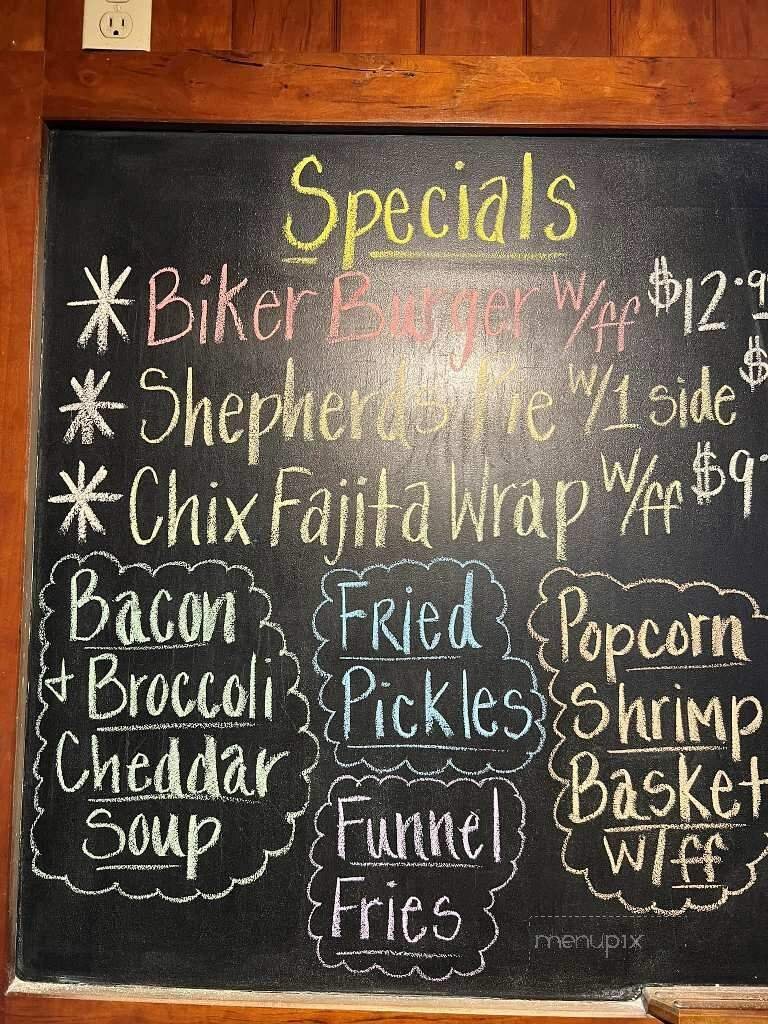 Specials
* Biker Burger w/ff $12.9
* Shepherds Pie w/1 side $
* Chix Fajita Wrap w/ff $9.
Bacon
+ Broccoli
Cheddar
Soup
Fried
Pickles
Funnel
Fries
Popcorn
Shrimp
Basket
w/ff
menupix